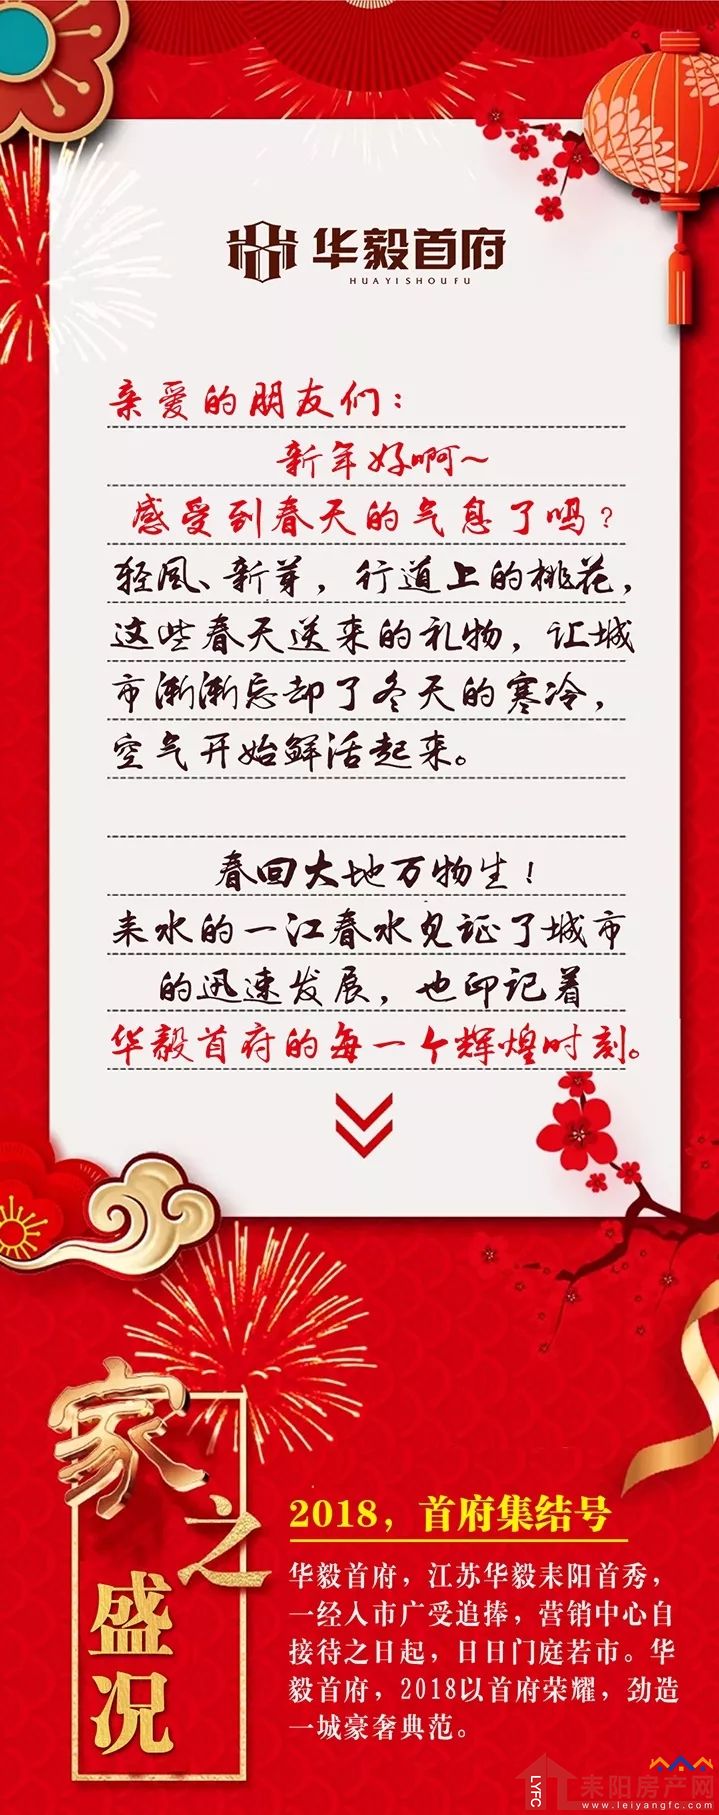 华毅首府
HUAYISHOUFU
亲爱的朋友们：
新年好啊~
感受到春天的气息了吗？
轻风、新芽，行道上的桃花，
这些春天送来的礼物，让城
市渐渐忘却了冬天的寒冷，
空气开始鲜活起来。
春回大地万物生！
耒水的一江春水见证了城市
的迅速发展，也印记着
华毅首府的每一个辉煌时刻。
家之盛况
2018，首府集结号
华毅首府，江苏华毅耒阳首秀，
一经入市广受追捧，营销中心自
接待之日起，日日门庭若市。华
毅首府，2018以首府荣耀，劲造
一城豪奢典范。
LYFC
耒阳房产网
www.leiyangfc.com